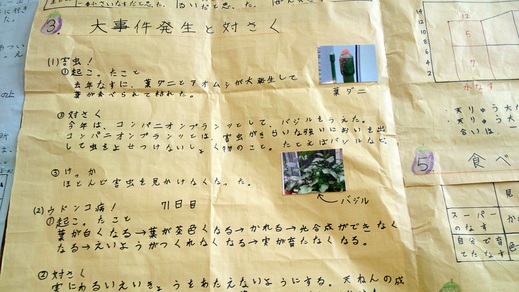 ③. 大事件発生と対さく
(1)害虫!
①起こったこと
去年なすに、葉ダニとアオムシが大発生して
葉が食べられて枯れた。
葉ダニ
②対さく
今年は、コンパニオンプランツとして、バジルをうえた。
コンパニオンプランツとは、害虫がきらいな強いにおいを出
して虫をよせつけないしょく物のこと。たとえばバジルなど。
③けっか
ほとんど害虫を見かけなくなった。
バジル
(2)ウドンコ病! 71日目
①起こったこと
葉が白くなる→葉が茶色くなる→かれる→光合成ができなく
なる→えいようがつくれなくなる→実が育たなくなる。
②対さく
実にわるいえいきょうをあたえないようにする。天ねんの成
14
12
10
8
6
4
2
かなす
天りゅう大
天りゅう大
合いは
⑤ 食べ
見
スーパー
のなす
自分で育
てたなす